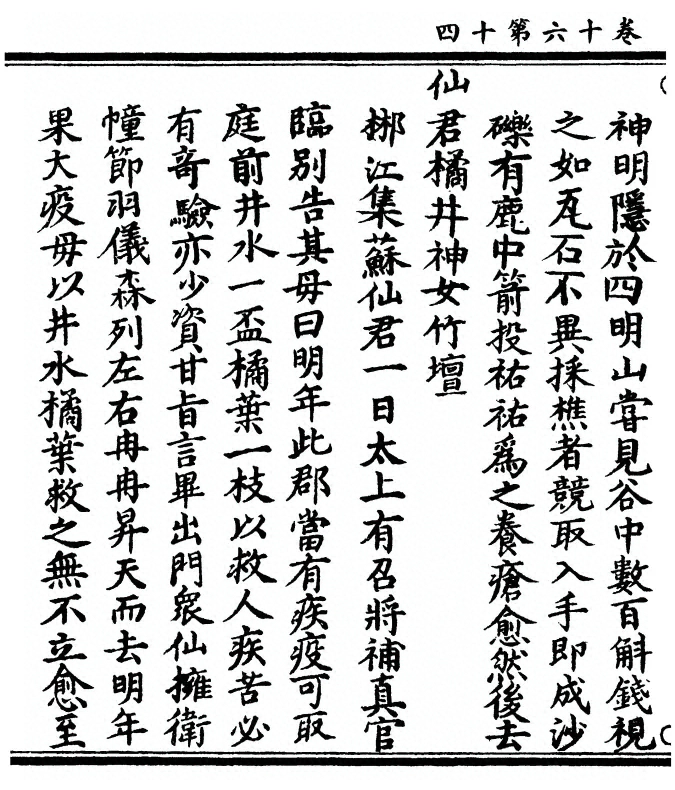 卷十六第十四
神明隱於四明山嘗見谷中數百斛錢視
之如瓦石不異採樵者競取入手即成沙
礫有鹿中箭投祐祐爲之養瘡愈然後去
仙君橘井神女竹壇
梆江集蘇仙君一日太上有召將補真官
臨別告其母曰明年此郡當有疾疫可取
庭前井水一盃橘葉一枝以救人疾苦必
有竒驗亦少資甘旨言畢出門衆仙擁衛
幢節羽儀森列左右冉冉昇天而去明年
果大疫母以井水橘葉救之無不立愈至